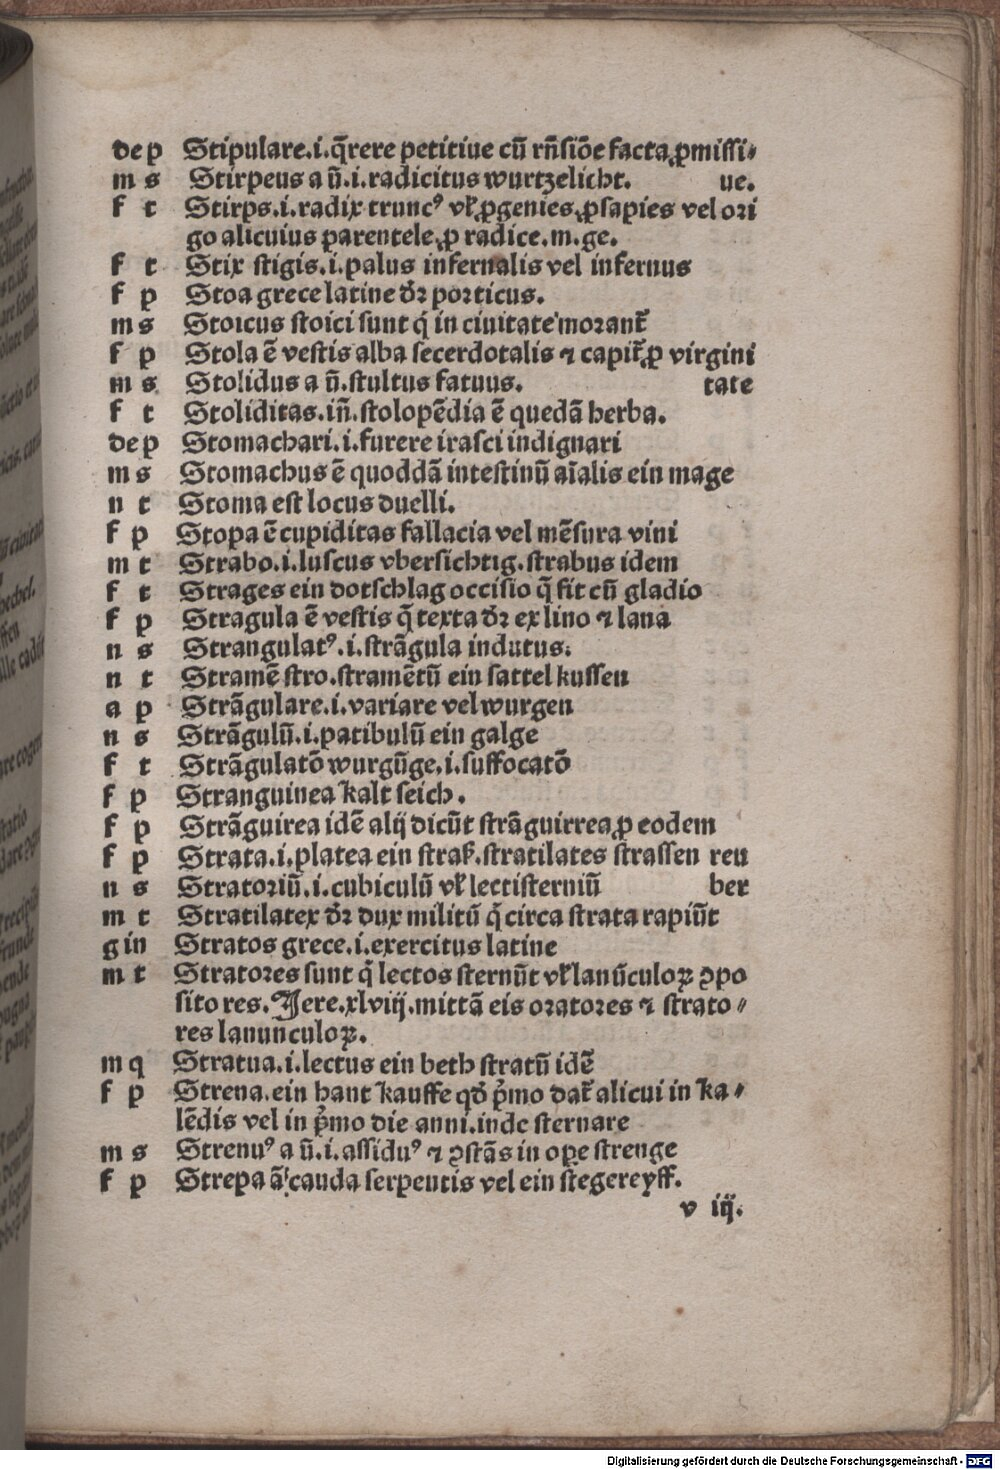 de p Stipulare.i.q̄rere petitiue cū rn̄siōe facta ꝓmissi⸗
m s Stirpeus a ū.i.radicitus wurtzelicht. ue.
f t Stirps.i.radix truncꝰ vł ꝓgenies ꝓsapies vel ori
go alicuius parentele ꝓ radice.m.ge.
f t Stix stigis.i.palus infernalis vel infernus
f p Stoa grece latine dr̄ porticus.
m s Stoicus stoici sunt q̇ in ciuitate morant᷑
f p Stola ē vestis alba secerdotalis ⁊ capit᷑ ꝓ virgini
m s Stolidus a ū.stultus fatuus. tate
f t Stoliditas.in̄.stolopēdia ē quedā herba.
de p Stomachari.i.furere irasci indignari
m s Stomachus ē quoddā intestinū aīalis ein mage
n t Stoma est locus duelli.
f p Stopa ē cupiditas fallacia vel mēsura vini
m t Strabo.i.luscus vbersichtig.strabus idem
f t Strages ein dotschlag occisio q̄ fit cū gladio
f p Stragula ē vestis q̄ texta dr̄ ex lino ⁊ lana
n s Strangulatꝰ.i.strāgula indutus.
n t Stramē stro.stramētū ein sattel kussen
a p Strāgulare.i.variare vel wurgen
n s Strāgulū.i.patibulū ein galge
f t Strāgulatō wurgūge.i.suffocatō
f p Stranguinea kalt seich.
f p Strāguirea idē alij dicūt strāguirrea ꝓ eodem
f p Strata.i.platea ein straß.stratilates strassen reu
n s Stratoriū.i.cubiculū vł lectisterniū ber
m t Stratilatex dr̄ dux militū q̇ circa strata rapiūt
g in Stratos grece.i.exercitus latine
m t Stratores sunt q̇ lectos sternūt vł lanūculoꝝ ꝯpo
sito res. Jere.xlviij.mittā eis oratores ⁊ strato⸗
res lanunculoꝝ.
m q Stratua.i.lectus ein beth stratū idē
f p Strena.ein hant kauffe qd̄ p̄mo dat᷑ alicui in ka⸗
lēdis vel in p̄mo die anni.inde sternare
m s Strenuꝰ a ū.i.assiduꝰ ⁊ ꝯstās in oꝑe strenge
f p Strepa ā cauda serpentis vel ein stegereyff.
v iij.
Digitalisierung gefördert durch die Deutsche Forschungsgemeinschaft - DFG